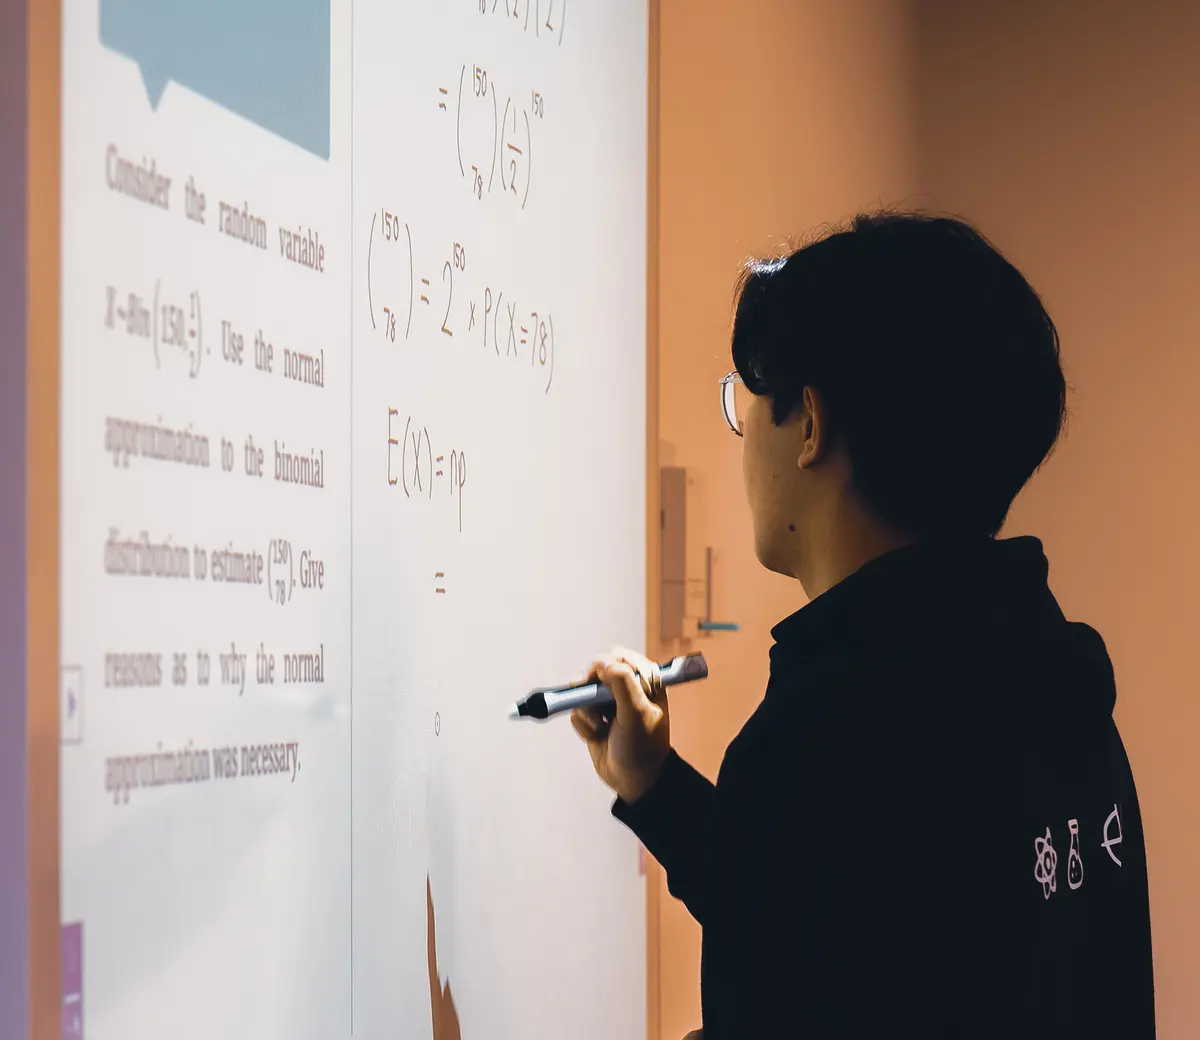 Consider the random variable
X~Bin(150, 1/2). Use the normal
approximation to the binomial
distribution to estimate (150 78). Give
reasons as to why the normal
approximation was necessary.
= (150 78)(1/2)^150
(150 78) = 2^150 × P(X=78)
E(X) = np
=